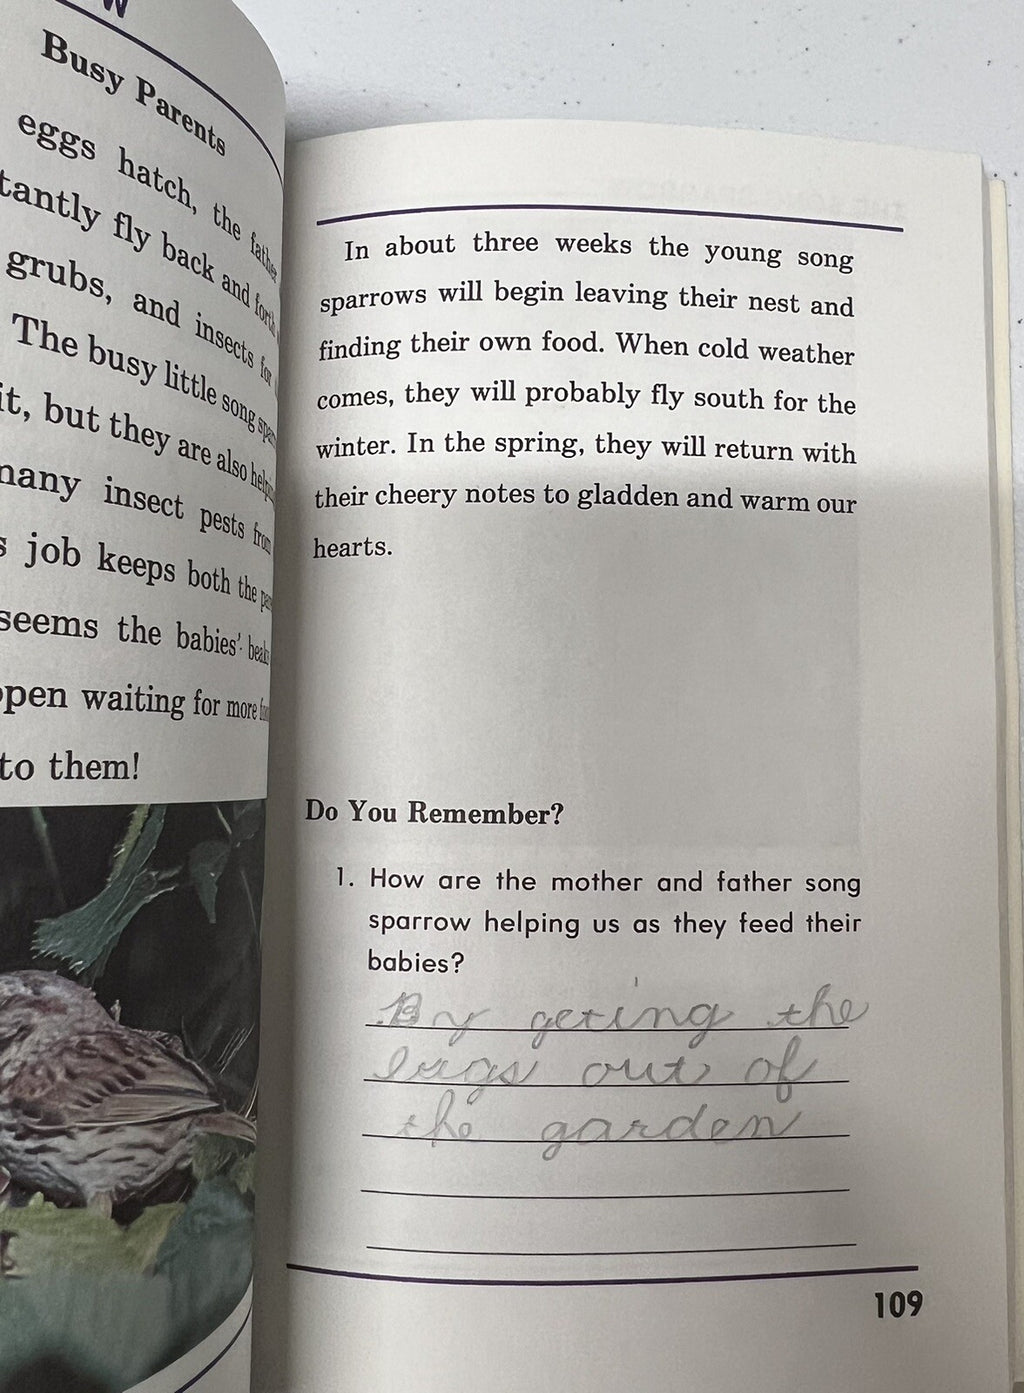 Busy Parents
eggs hatch, the father
tantly fly back and forth
grubs, and insects for
The busy little song
it, but they are also
many insect pests from
job keeps both the
seems the babies' beaks
open waiting for more
to them!
In about three weeks the young song
sparrows will begin leaving their nest and
finding their own food. When cold weather
comes, they will probably fly south for the
winter. In the spring, they will return with
their cheery notes to gladden and warm our
hearts.
Do You Remember?
1. How are the mother and father song
sparrow helping us as they feed their
babies?
By geting the
bugs out of
the garden
109